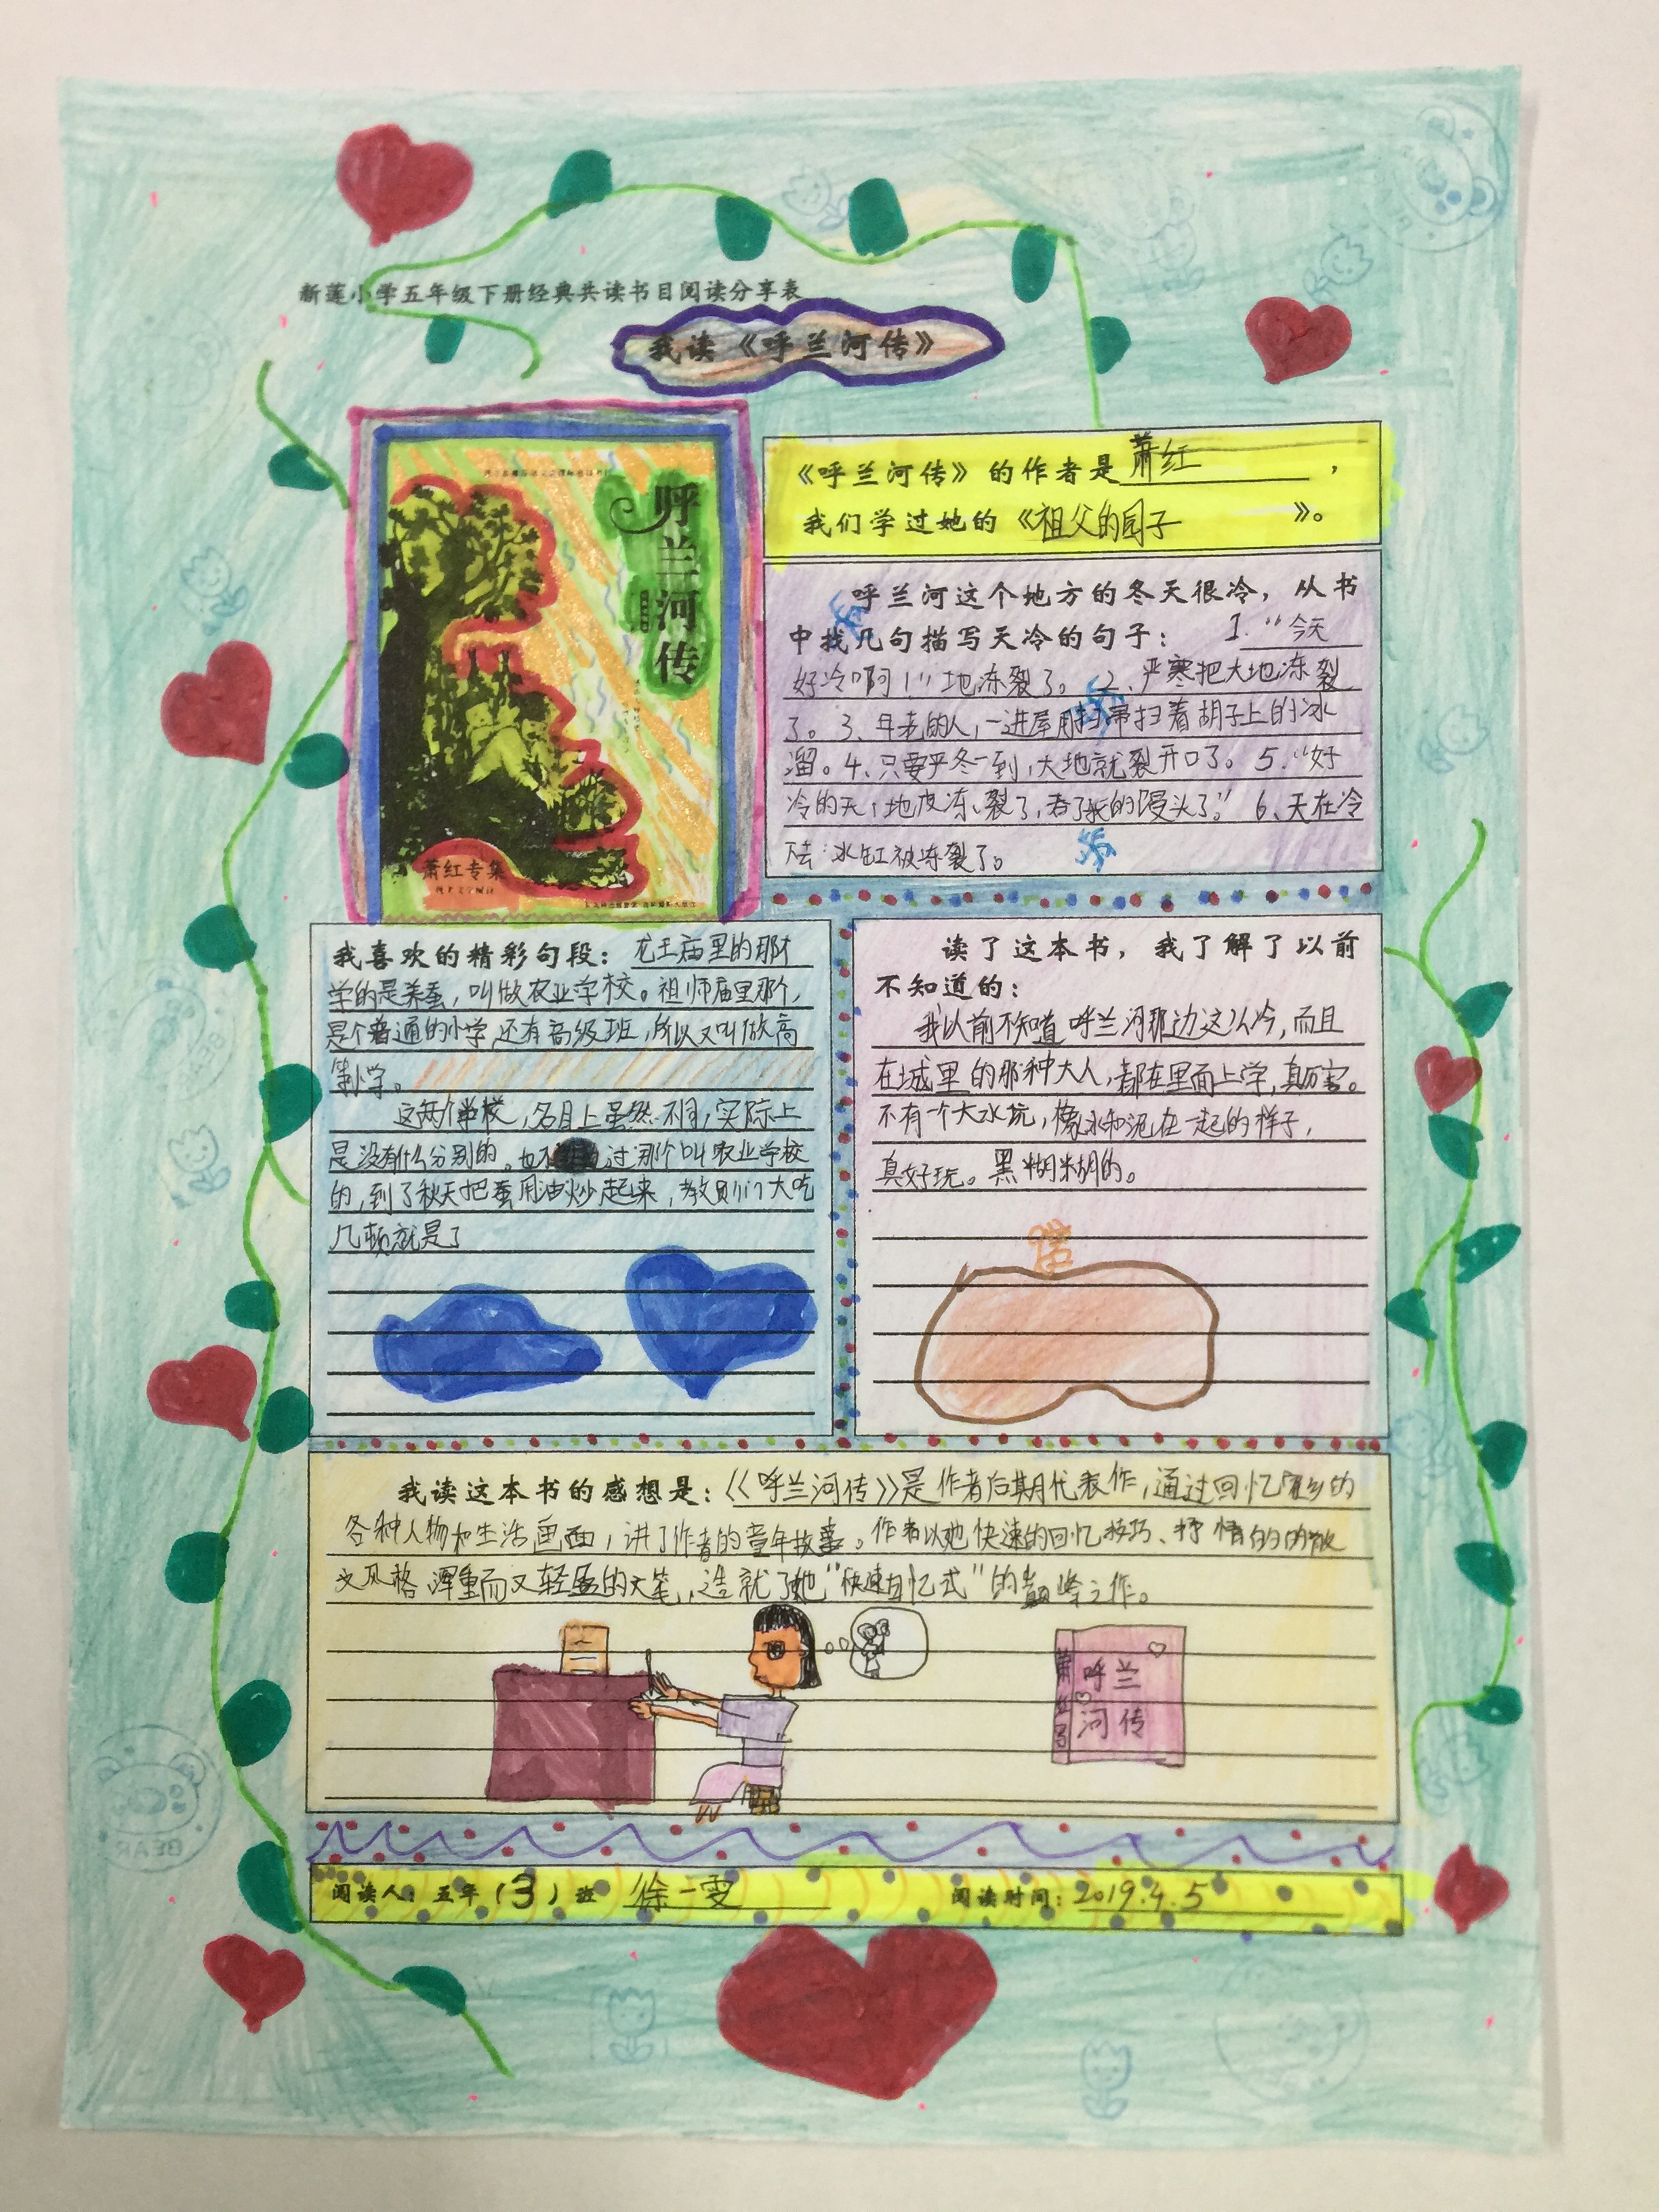 新莲小学五年级下册经典共读书目阅读分享表
我读《呼兰河传》
呼兰河传
萧红专集
《呼兰河传》的作者是萧红，
我们学过她的《祖父的园子》。
呼兰河这个地方的冬天很冷，从书
中找几句描写天冷的句子： 1.“今天
好冷啊！”地冻裂了。2、严寒把大地冻裂
了。3、年老的人，一进屋用扫帚扫着胡子上的冰
溜。4、只要严冬一到，大地就裂开口了。5.“好
冷的天，地皮冻裂了，吞了我的馒头了。” 6、天在冷
下去：水缸被冻裂了。
我喜欢的精彩句段：龙王庙里的那才
学的是养蚕，叫做农业学校。祖师庙里那个，
是个普通的小学，还有高级班，所以又叫做高
等小学。
这两个学校，名目上虽然不同，实际上
是没有什么分别的。也不过那个叫农业学校
的，到了秋天把蚕用油炒起来，教员们大吃
几顿就是了
读了这本书，我了解了以前
不知道的：
我以前不知道呼兰河那边这么冷，而且
在城里的那种大人，都在里面上学，真厉害。
不有一个大水坑，像水和泥在一起的样子，
真好玩。黑糊糊的。
我读这本书的感想是：《呼兰河传》是作者后期代表作，通过回忆家乡的
各种人物和生活画面，讲了作者的童年故事。作者以她快速的回忆技巧、抒情的的散
文风格浑重而又轻盈的文笔，造就了她“快速自忆式”的巅峰之作。
呼兰
河传
萧红写
阅读人：五年（3）班 徐一雯 阅读时间：2019.4.5
BEAR
BEAR